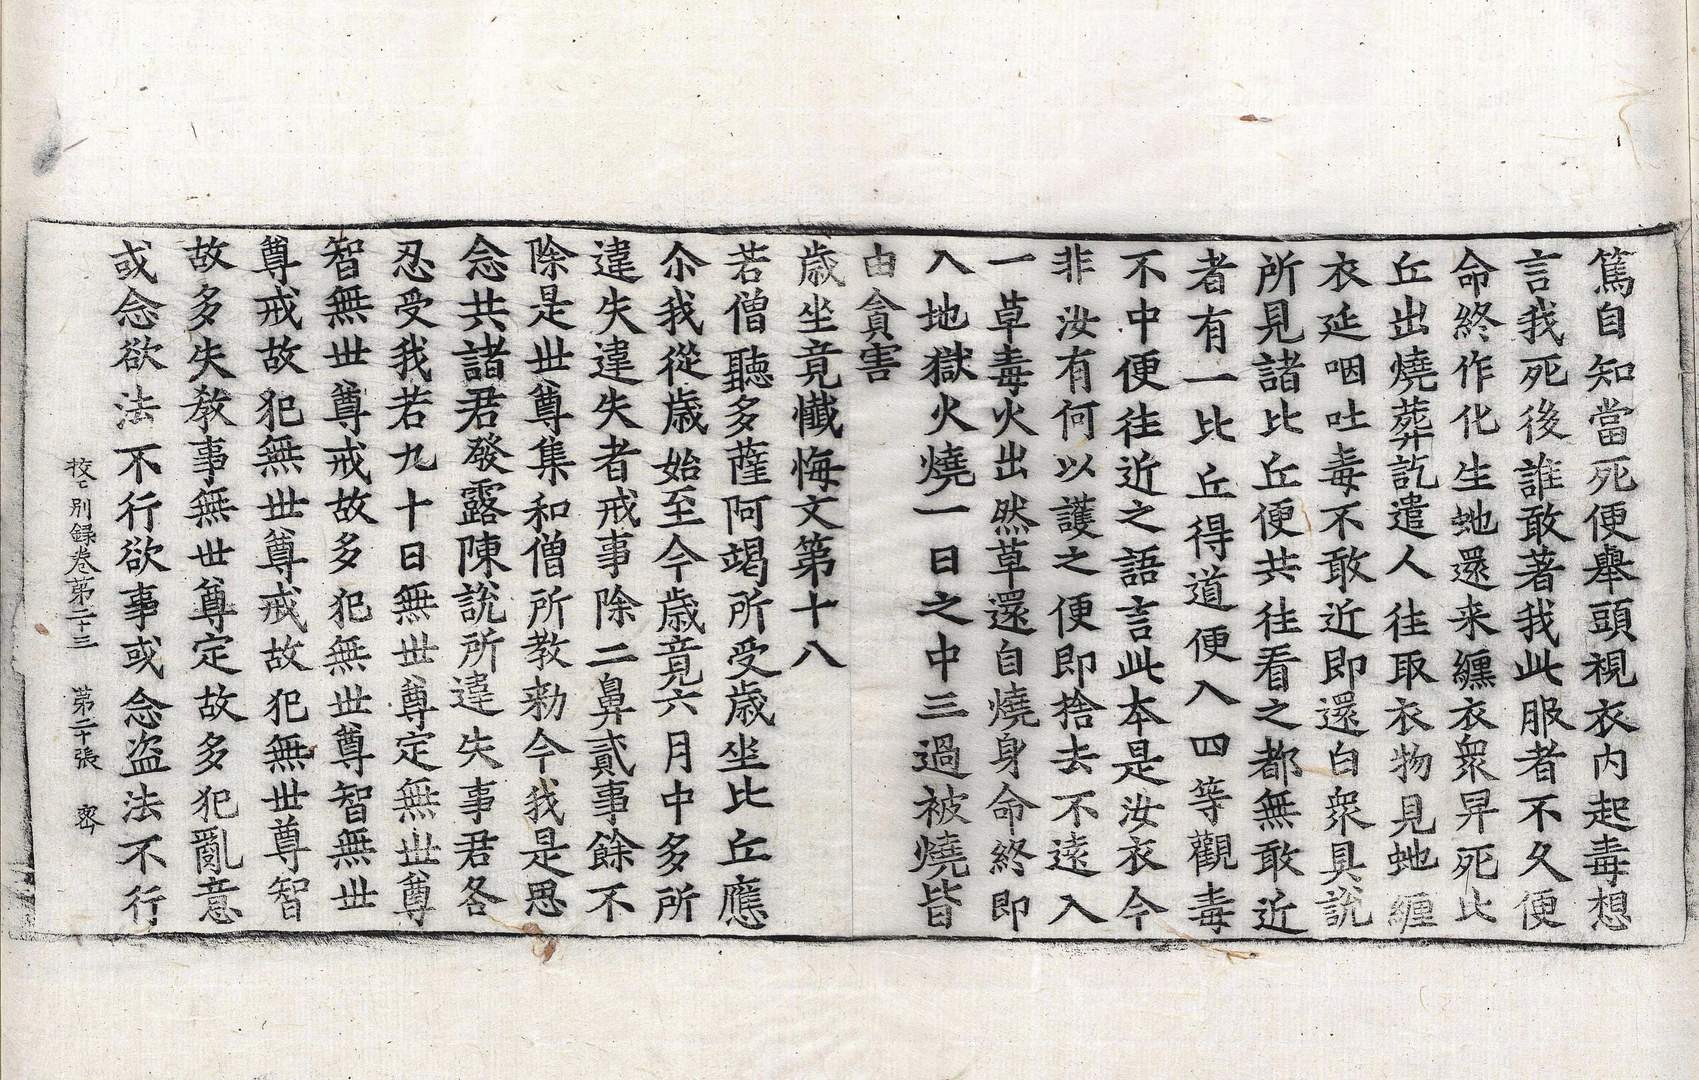 篤自知當死便舉頭視衣内起毒想
言我死後誰敢著我此服者不久便
命終作化生虵還来纏衣衆昇死比
丘出燒葬訖遣人往取衣物見虵纏
衣延咽吐毒不敢近即還白衆具說
所見諸比丘便共往看之都無敢近
者有一比丘得道便入四等觀毒
不中便往近之語言此本是汝衣今
非汝有何以護之便即捨去不遠入
一草毒火出然草還自燒身命終即
入地獄火燒一日之中三過被燒皆
由貪害
歲坐竟懺悔文第十八
若僧聽多薩阿竭所受歲坐比丘應
尒我從歲始至今歲竟六月中多所
違失違失者戒事除二鼻貳事餘不
除是世尊集和僧所教勑今我是思
念共諸君發露陳說所違失事君各
忍受我若九十日無世尊定無世尊
智無世尊戒故多犯無世尊智無世
尊戒故犯無世尊戒故犯無世尊智
故多失教事無世尊定故多犯亂意
或念欲法不行欲事或念盗法不行
挍正別録卷苐二十三　苐二十張　密